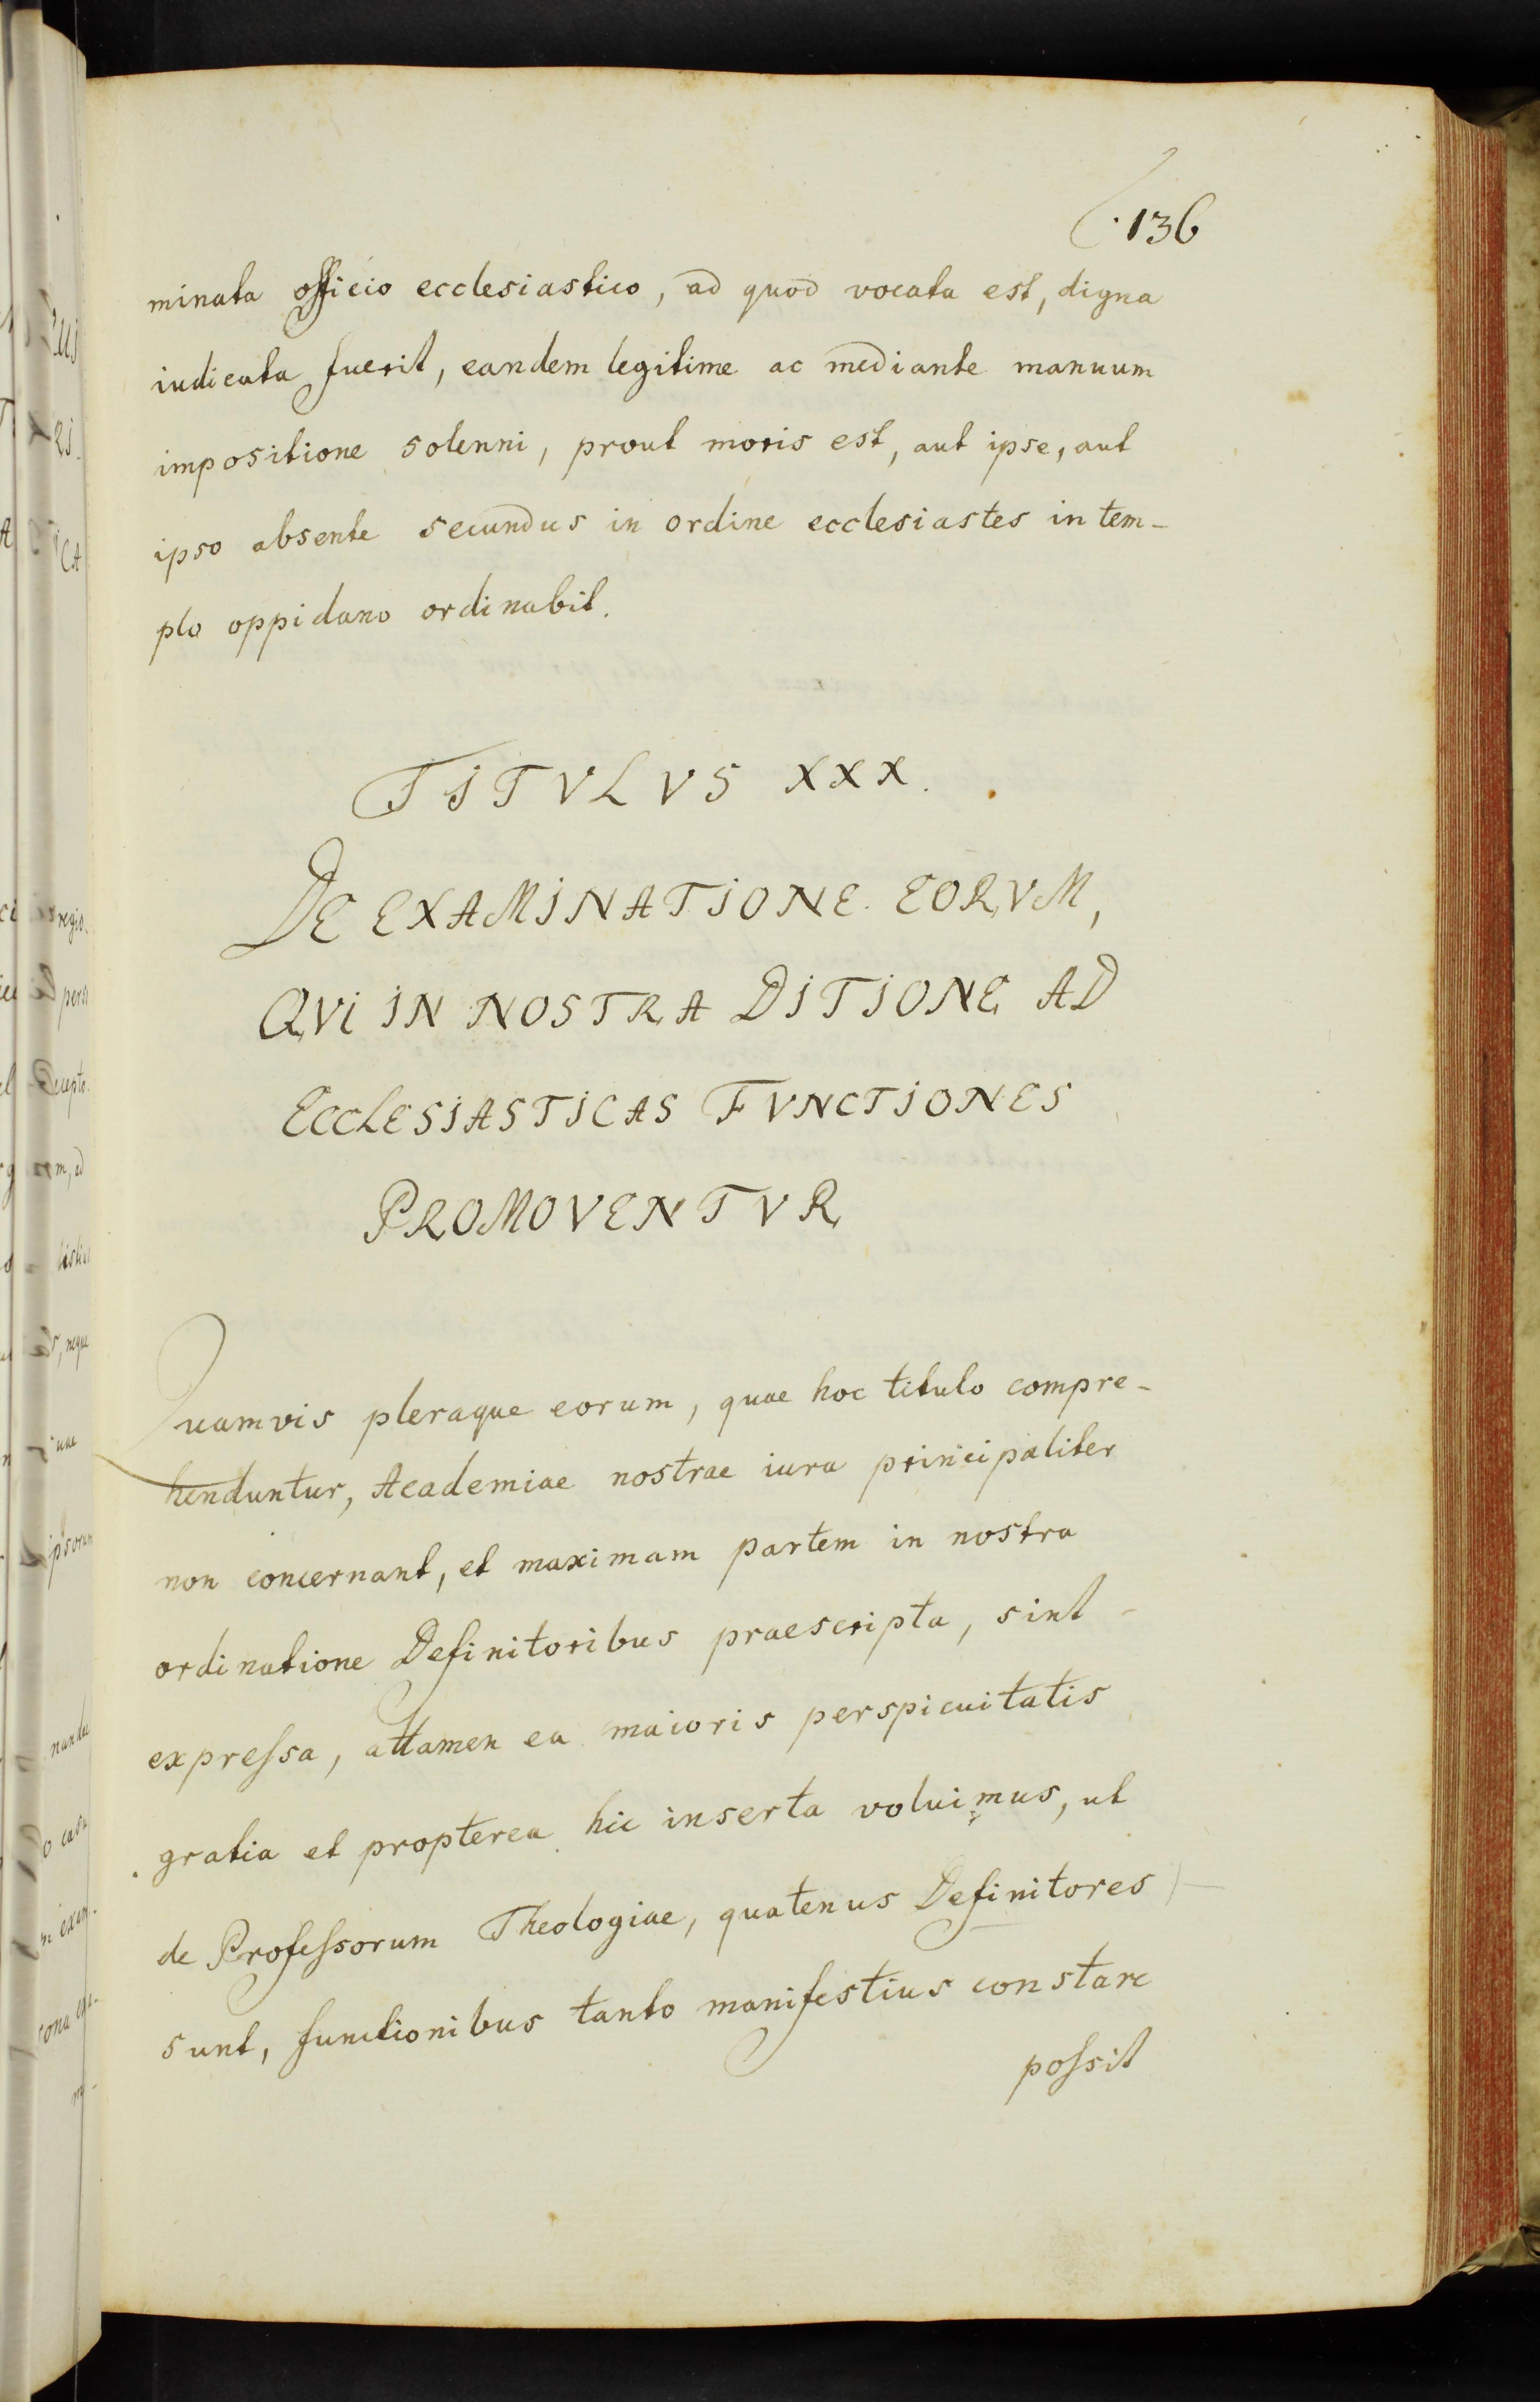 136
minata officio ecclesiastico, ad quod vocata est, digna
iudicata fuerit, eandem legitime ac mediante manuum
impositione solenni, prout moris est, aut ipse, aut
ipso absente secundus in ordine ecclesiastes in tem-
plo oppidano ordinabit.
TITVLVS XXX.
DE EXAMINATIONE EORVM,
QVI IN NOSTRA DITIONE AD
ECCLESIASTICAS FVNCTIONES
PROMOVENTVR
Quamvis pleraque eorum, quae hoc titulo compre-
henduntur, Academiae nostrae iura principaliter
non concernant, et maximam partem in nostra
ordinatione Definitoribus praescripta, sint
expreſsa, attamen ea maioris perspicuitatis
gratia et propterea hic inserta voluimus, ut
de Profeſsorum Theologiae, quatenus Definitores
sunt, functionibus tanto manifestius constare
poſsit